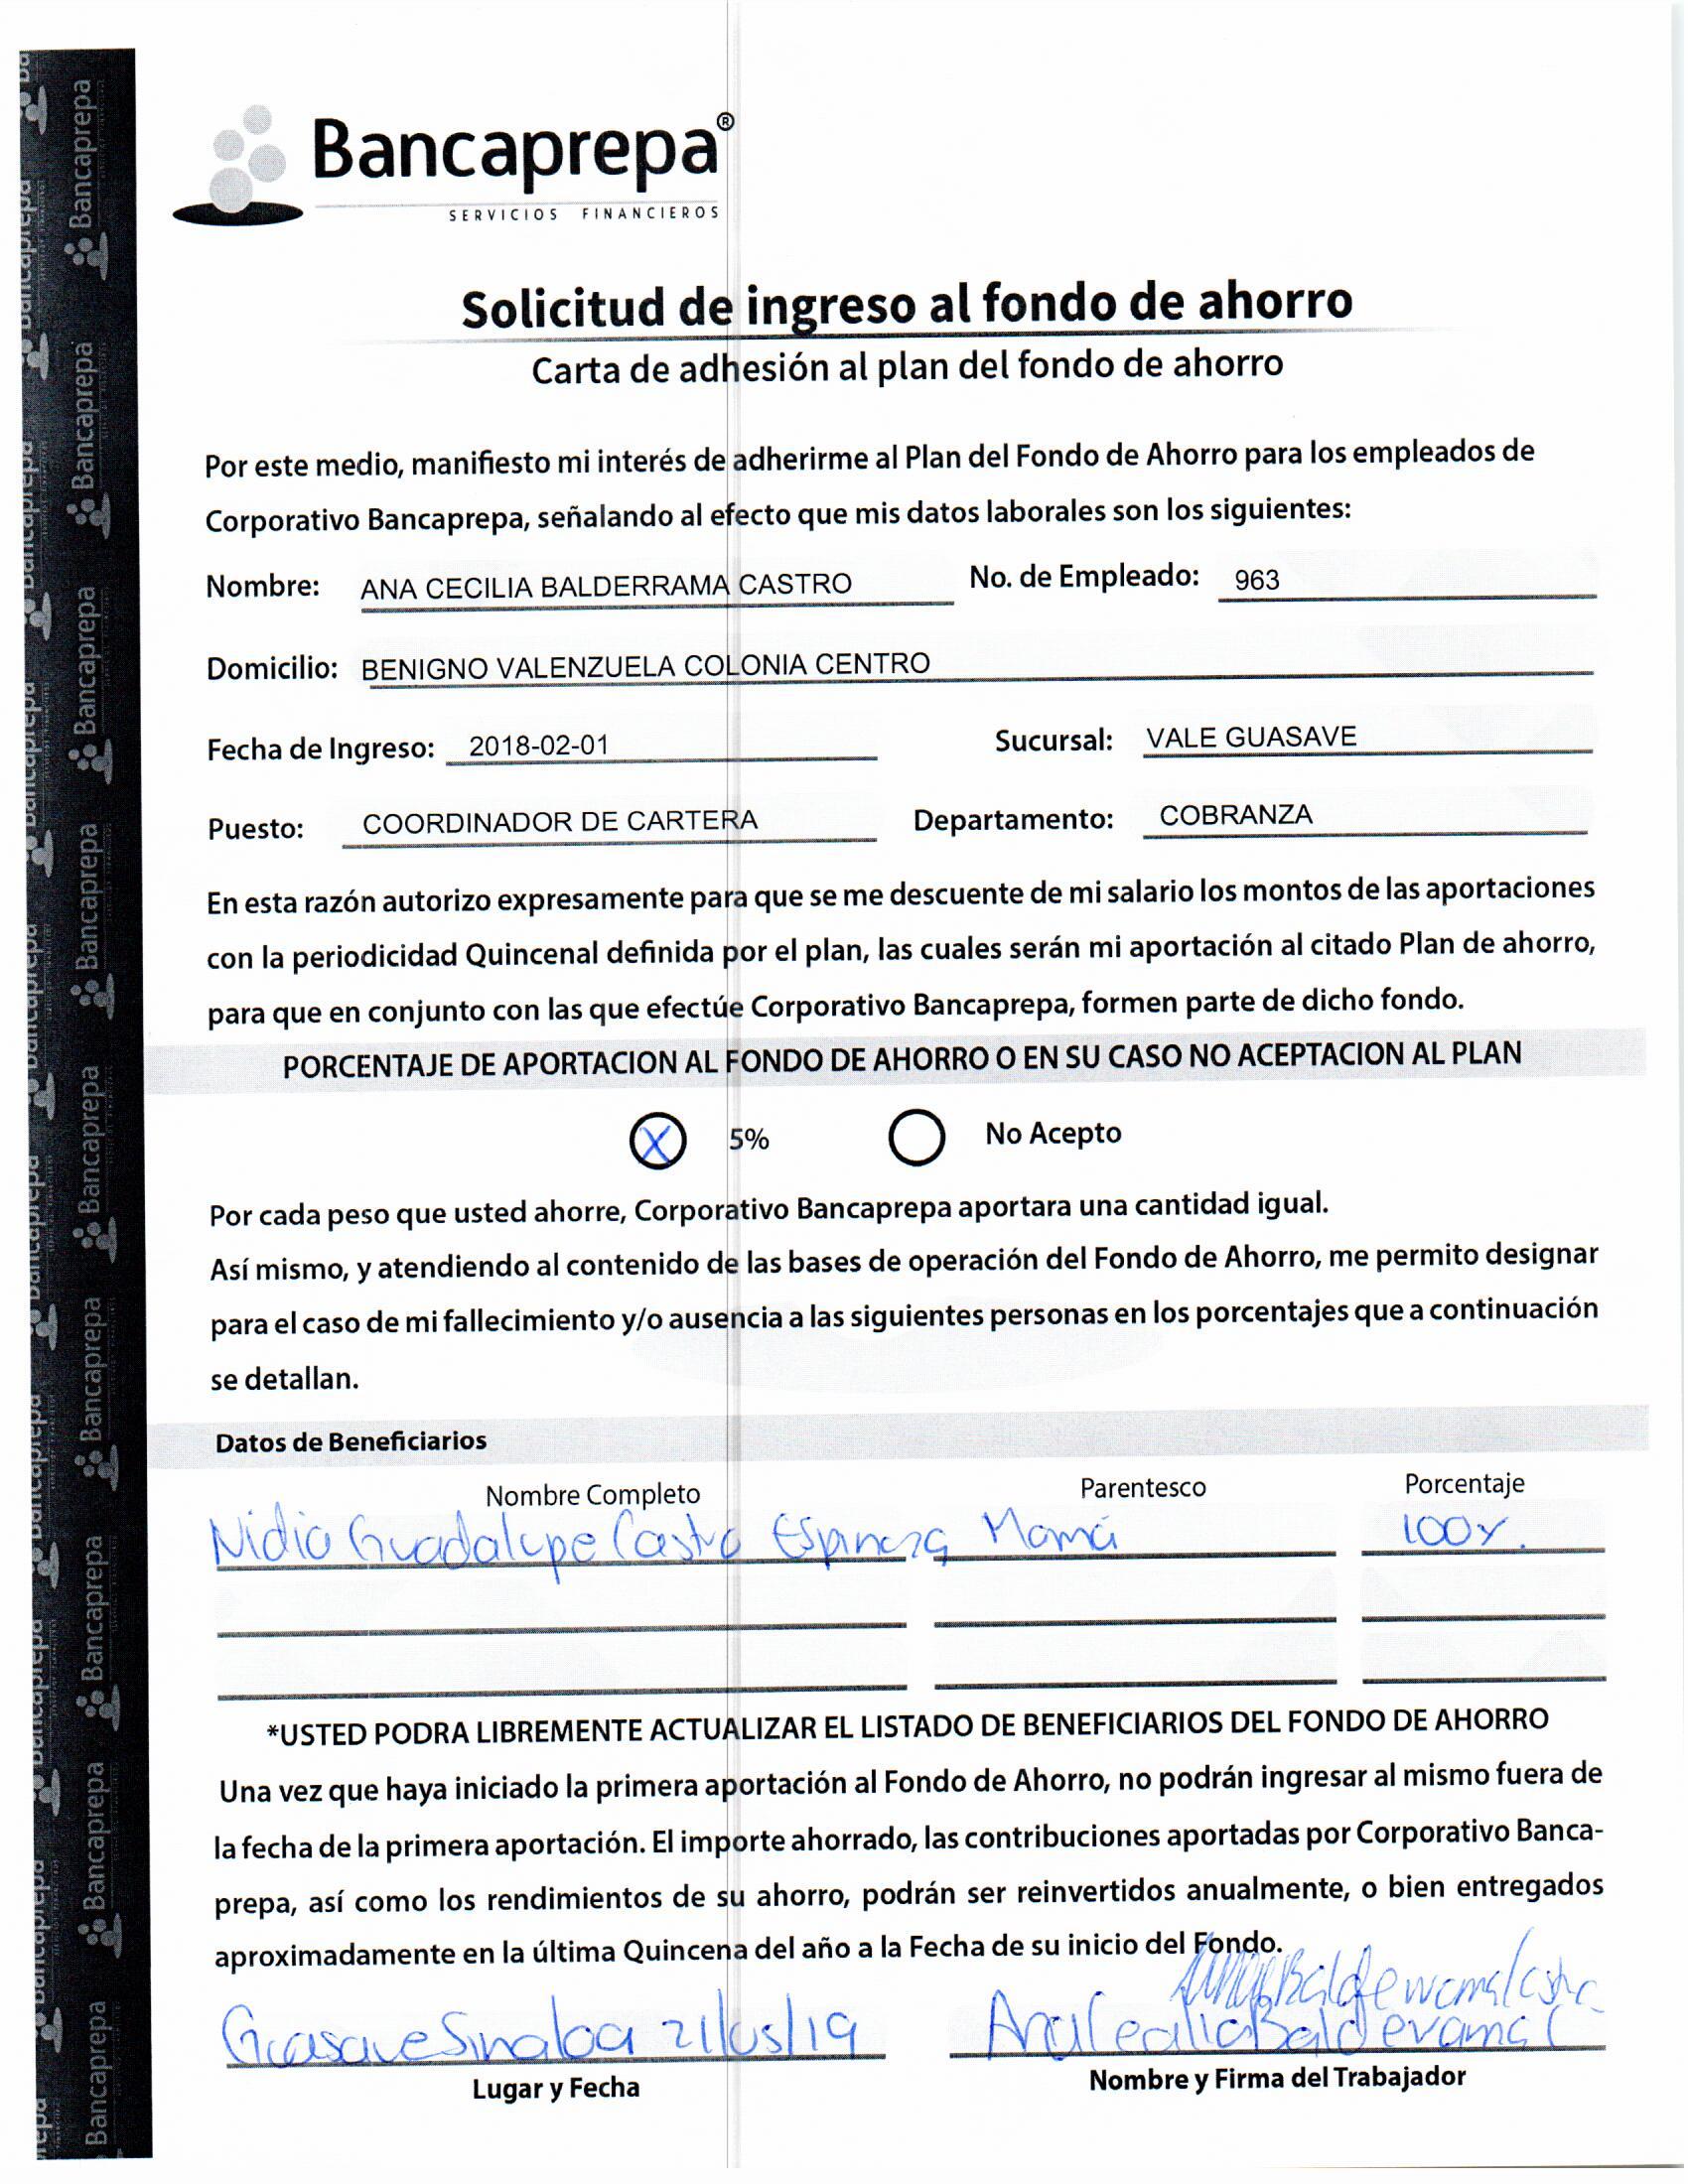 Bancaprepa®
SERVICIOS FINANCIEROS
Solicitud de ingreso al fondo de ahorro
Carta de adhesión al plan del fondo de ahorro
Por este medio, manifiesto mi interés de adherirme al Plan del Fondo de Ahorro para los empleados de
Corporativo Bancaprepa, señalando al efecto que mis datos laborales son los siguientes:
Nombre: ANA CECILIA BALDERRAMA CASTRO No. de Empleado: 963
Domicilio: BENIGNO VALENZUELA COLONIA CENTRO
Fecha de Ingreso: 2018-02-01 Sucursal: VALE GUASAVE
Puesto: COORDINADOR DE CARTERA Departamento: COBRANZA
En esta razón autorizo expresamente para que se me descuente de mi salario los montos de las aportaciones
con la periodicidad Quincenal definida por el plan, las cuales serán mi aportación al citado Plan de ahorro,
para que en conjunto con las que efectúe Corporativo Bancaprepa, formen parte de dicho fondo.
PORCENTAJE DE APORTACION AL FONDO DE AHORRO O EN SU CASO NO ACEPTACION AL PLAN
X 5% No Acepto
Por cada peso que usted ahorre, Corporativo Bancaprepa aportara una cantidad igual.
Así mismo, y atendiendo al contenido de las bases de operación del Fondo de Ahorro, me permito designar
para el caso de mi fallecimiento y/o ausencia a las siguientes personas en los porcentajes que a continuación
se detallan.
Datos de Beneficiarios
Nombre Completo Parentesco Porcentaje
Nidia Guadalupe Castro Espinoza Mamá 100%.
*USTED PODRA LIBREMENTE ACTUALIZAR EL LISTADO DE BENEFICIARIOS DEL FONDO DE AHORRO
Una vez que haya iniciado la primera aportación al Fondo de Ahorro, no podrán ingresar al mismo fuera de
la fecha de la primera aportación. El importe ahorrado, las contribuciones aportadas por Corporativo Banca-
prepa, así como los rendimientos de su ahorro, podrán ser reinvertidos anualmente, o bien entregados
aproximadamente en la última Quincena del año a la Fecha de su inicio del Fondo.
Guasave Sinaloa 21/05/19 Ana Cecilia Balderrama C
Lugar y Fecha Nombre y Firma del Trabajador